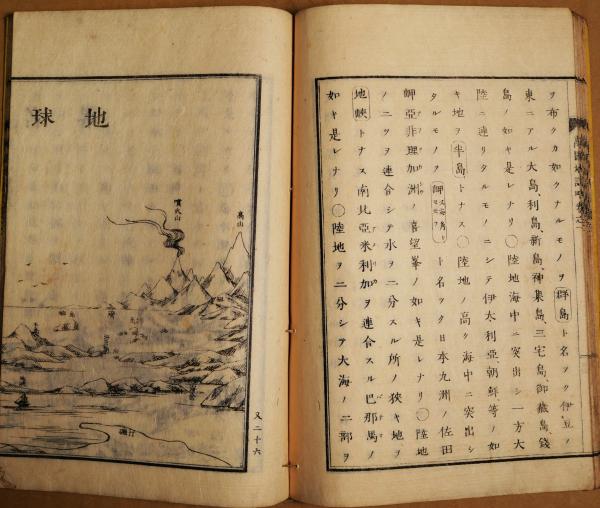 ヲ布クカ如クナルモノヲ群島ト名ヲク伊豆ノ
東ニアル大島、利島、新島、神集島、三宅島、御蔵島、錢
島ノ如キ是レナリ〇陸地海中ニ突出シ一方大
陸ニ連リタルモノニシテ伊太利亞朝鮮等ノ如
キ地ヲ半島トナス〇陸地ノ高ク海中ニ突出シ
タルモノヲ岬ト名ヲク日本九洲ノ佐田
岬亞非理加洲ノ喜望峯ノ如キ是レナリ〇陸地
ノ二ツヲ連合シテ水ヲ二分スル所ノ狹キ地ヲ
地峽トナス南北亞米利加ヲ連合スル巴那馬ノ
如キ是レナリ〇陸地ヲ二分シテ大海ノ二部ヲ
地球
高山
噴火山
又二十六